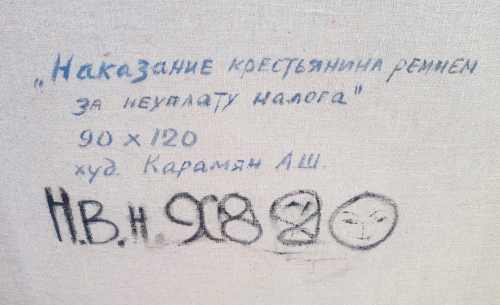 „Наказание крестьянина ремнем
за неуплату налога"
90 х 120
худ. Карамян А.Ш.
Н.В.Н. 98